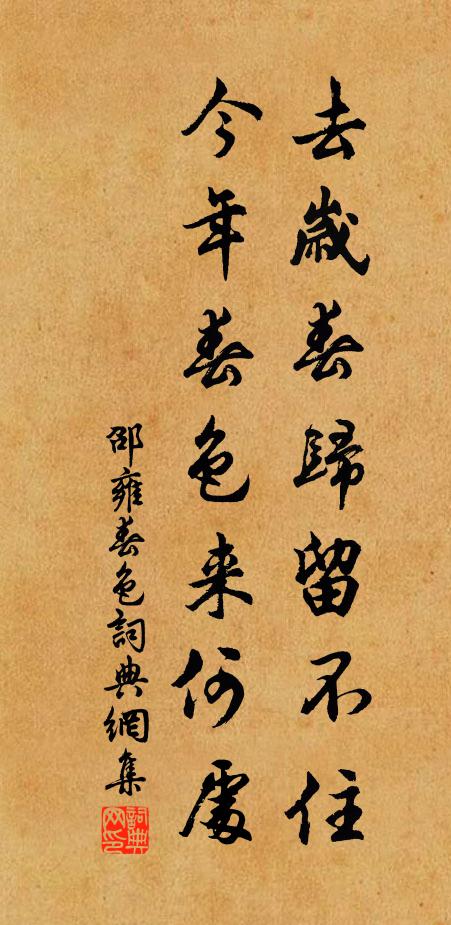 去歲春歸留不住
今年春色来何處
邵雍春色詞典網集
詞典网印